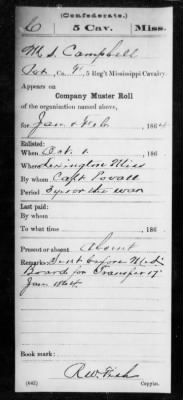 (Confederate.)
C 5 Cav. Miss.
M. S. Campbell
Pvt, Co. F, 5 Reg't Mississippi Cavalry.
Appears on
Company Muster Roll
of the organization named above,
for Jan & Feb, 1864
Enlisted:
When Oct 1, 186
Where Lexington Miss
By whom Capt Povall
Period 3 yrs or the war
Last paid:
By whom
To what time, 186
Present or absent Absent
Remarks: Sent before Med
Board for Transfer 17
Jan 1864
Book mark:
R W Fish
(642) Copyist.